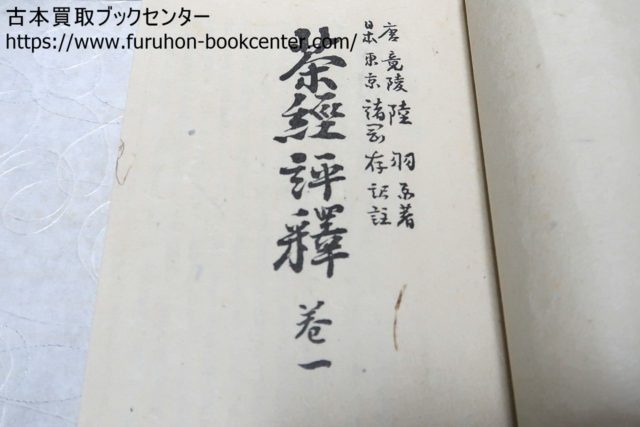 古本買取ブックセンター
https://www.furuhon-bookcenter.com/
唐竟陵 陸羽 原著
日本東京 諸岡存 訳註
茶經評釋 巻一